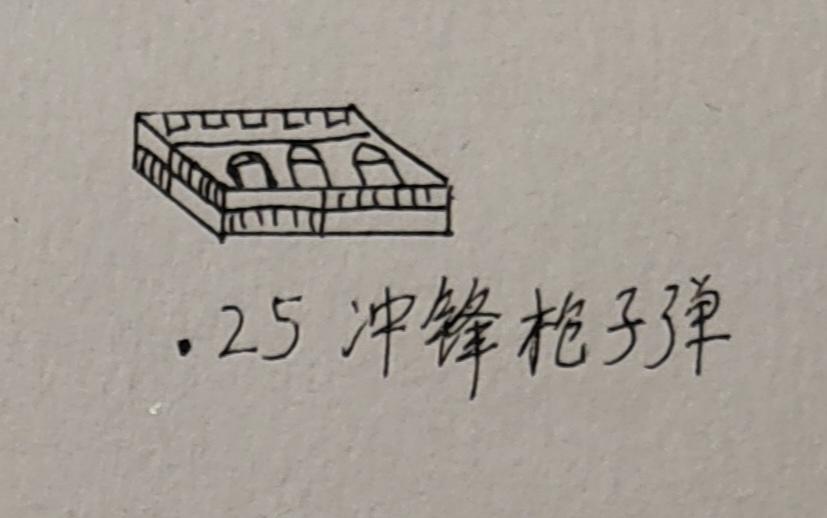 .25 冲锋枪子弹